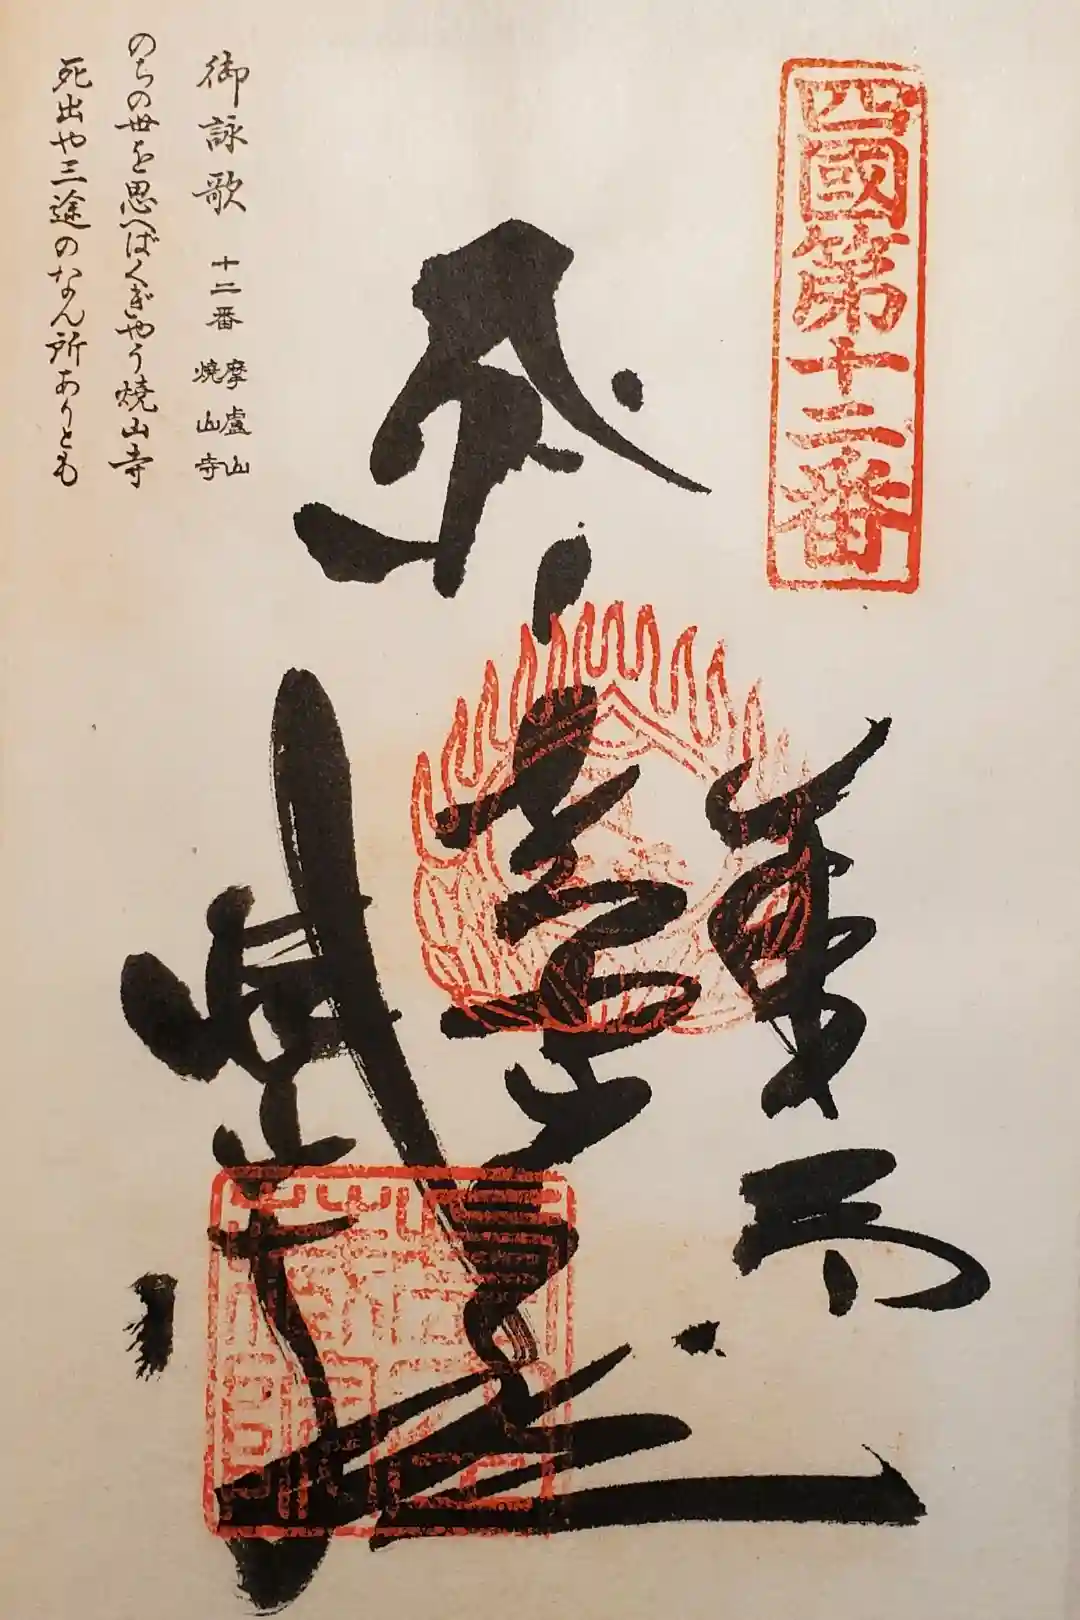 四國第十二番
奉納
焼山寺
御詠歌 十二番 摩盧山 焼山寺
のちの世を思へばくぎやう焼山寺
死出や三途のなん所ありとも